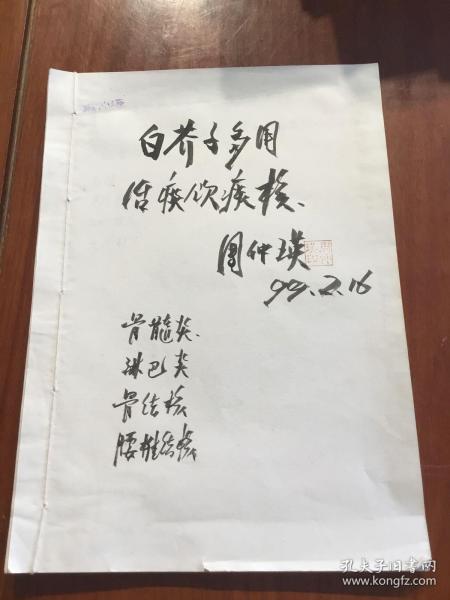 白芥子多用
治痰饮痰核、
周仲瑛
99.2.16
骨髓炎、
淋巴炎
骨结核
腰椎结核
孔夫子旧书网
www.kongfz.com